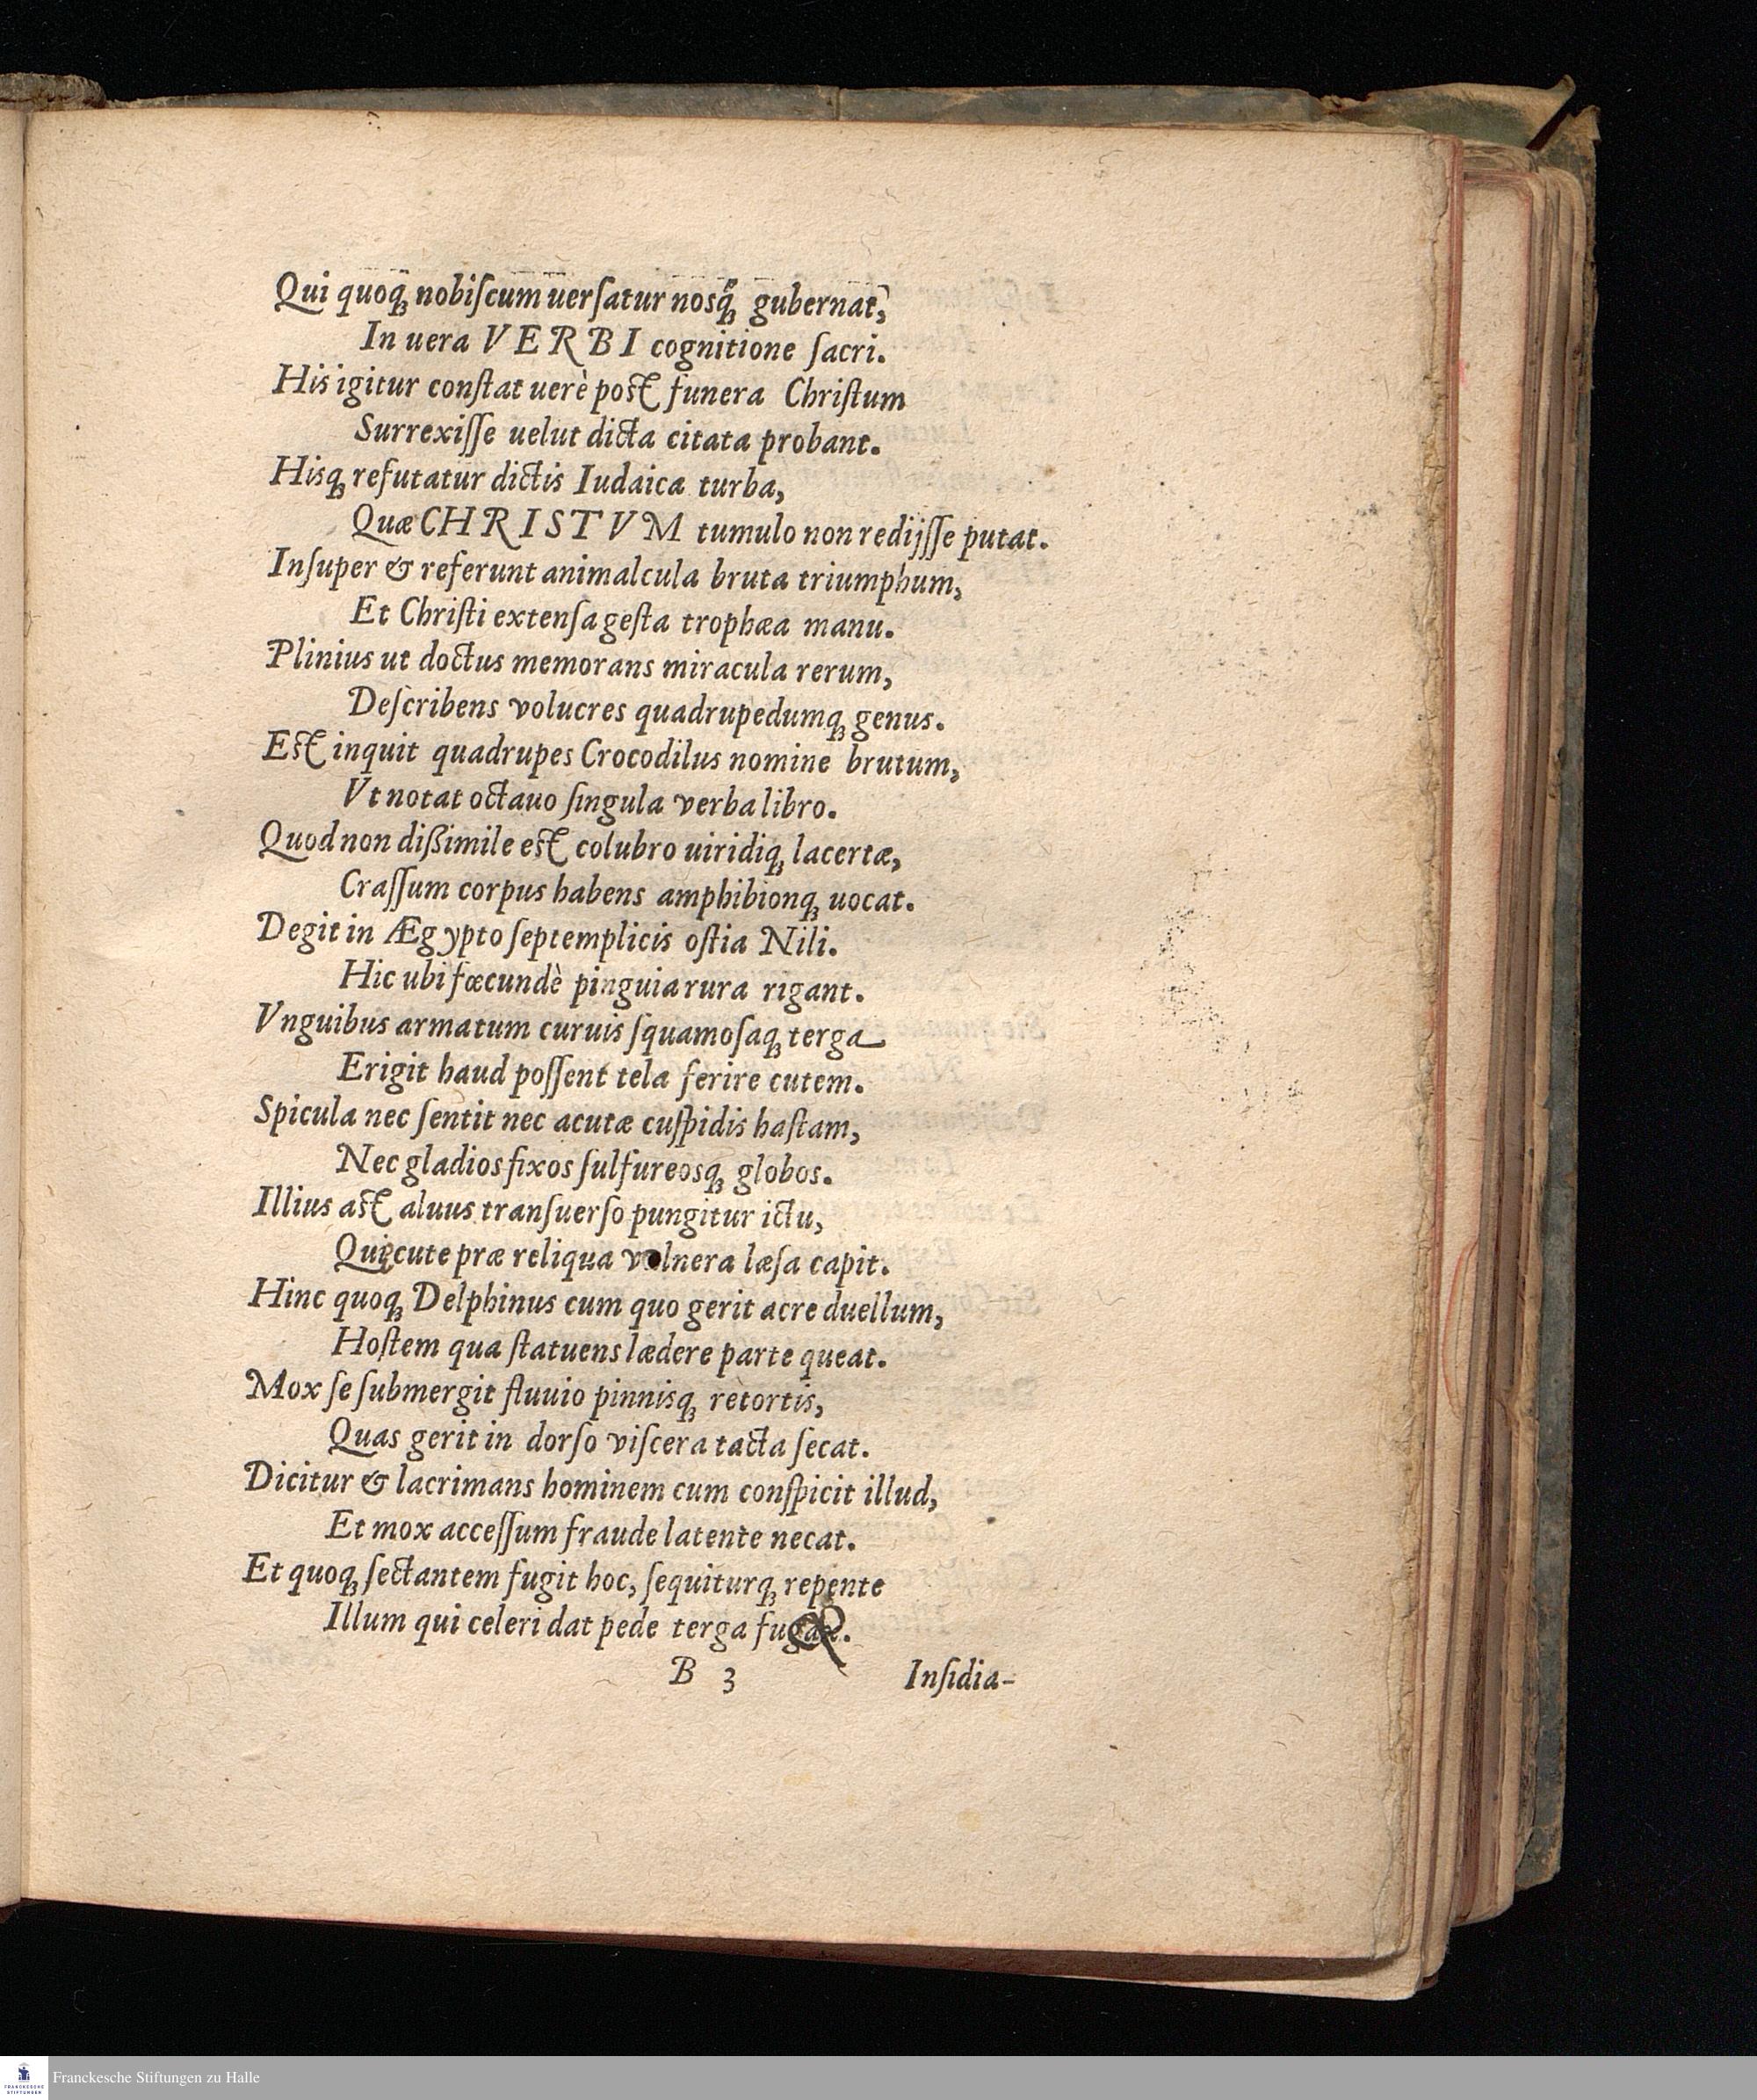 Qui quoqꝫ nobiſcum uerſatur nosqꝫ gubernat,
In uera VERBI cognitione ſacri.
His igitur conſtat uerè poſt funera Chriſtum
Surrexiſſe uelut dicta citata probant.
Hisqꝫ refutatur dictis Iudaica turba,
Quæ CHRISTVM tumulo non redijſſe putat.
Inſuper & referunt animalcula bruta triumphum,
Et Chriſti extenſa geſta trophæa manu.
Plinius ut doctus memorans miracula rerum,
Deſcribens volucres quadrupedumqꝫ genus.
Eſt inquit quadrupes Crocodilus nomine brutum,
Vt notat octauo ſingula verba libro.
Quod non dißimile eſt colubro uiridiqꝫ lacertæ,
Craſſum corpus habens amphibionqꝫ uocat.
Degit in Ægypto ſeptemplicis oſtia Nili.
Hic ubi fœcundè pinguia rura rigant.
Vnguibus armatum curuis ſquamoſaqꝫ terga
Erigit haud poſſent tela ferire cutem.
Spicula nec ſentit nec acutæ cuſpidis haſtam,
Nec gladios fixos ſulfureosqꝫ globos.
Illius aſt aluus tranſuerſo pungitur ictu,
cute præ reliqua volnera læſa capit.
Hinc quoqꝫ Delphinus cum quo gerit acre duellum,
Hoſtem qua ſtatuens lædere parte queat.
Mox ſe ſubmergit fluuio pinnisqꝫ retortis,
Quas gerit in dorſo viſcera tacta ſecat.
Dicitur & lacrimans hominem cum conſpicit illud,
Et mox acceſſum fraude latente necat.
Et quoqꝫ ſectantem fugit hoc, ſequiturqꝫ repente
Illum qui celeri dat pede terga
B 3 Inſidia-
Franckesche Stiftungen zu Halle
FRANCKESCHE
STIFTUNGEN